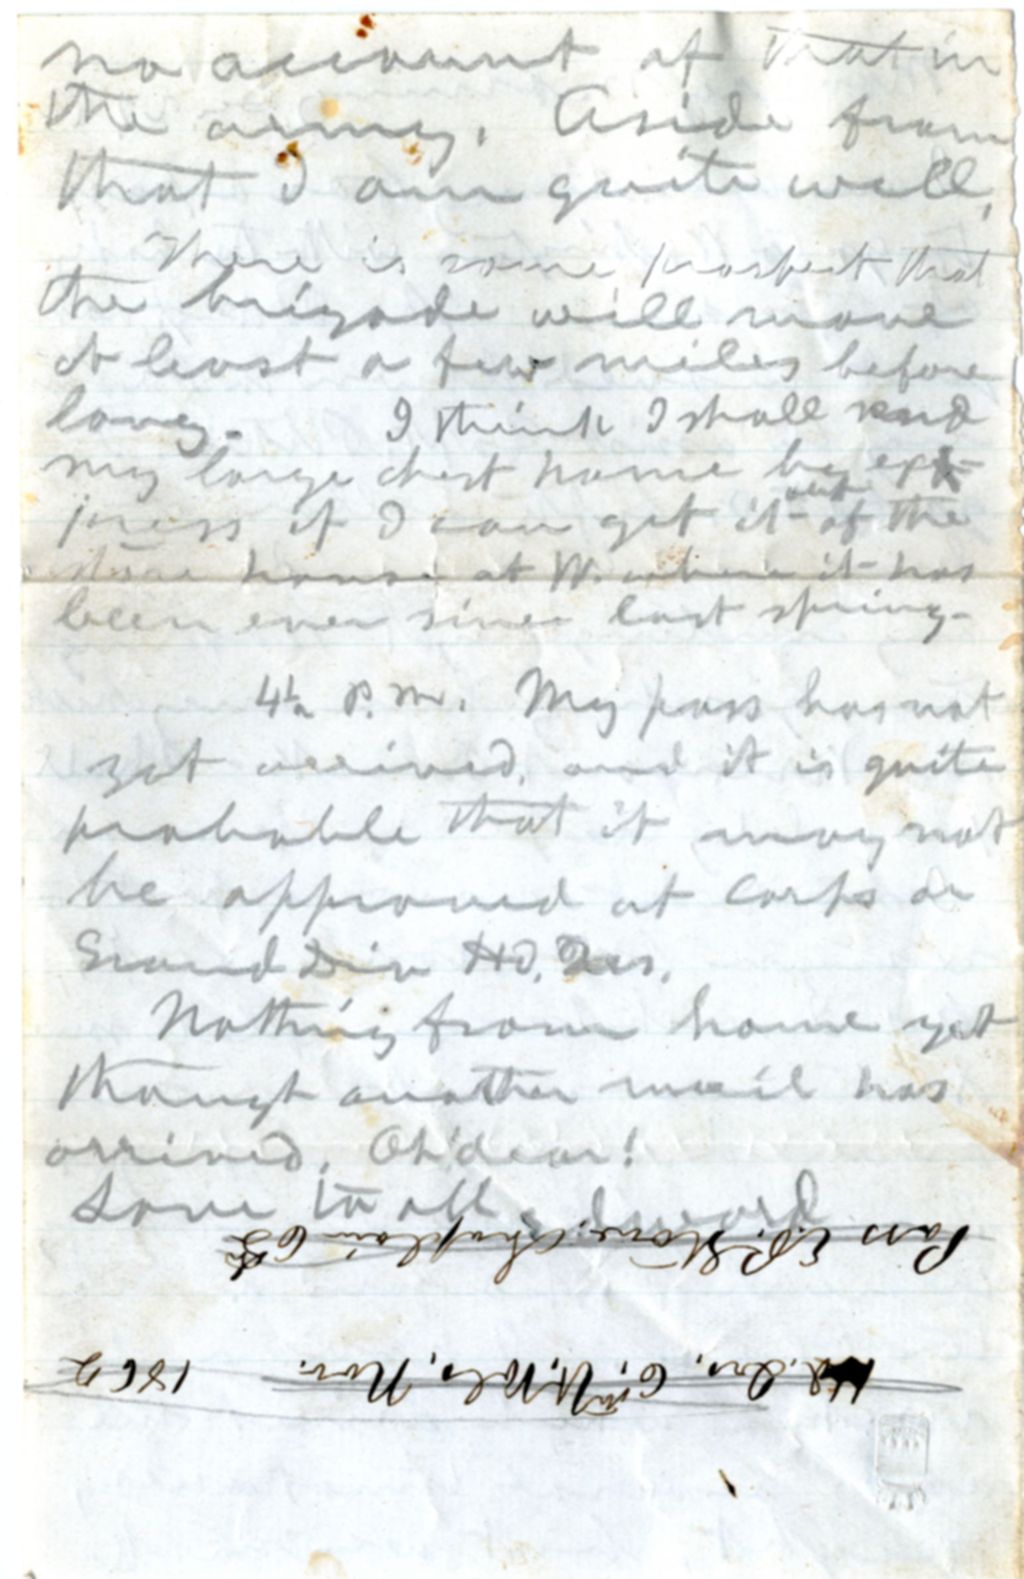 no account of that in
the army. Aside from
that I am quite well,
There is some prospect that
the brigade will move
at least a few miles before
long. I think I shall send
my large chest home by ex-
press if I can get it out of the
store house at W. where it has
been ever since last spring.
4½ P.M. My pass has not
yet arrived, and it is quite
probable that it may not
be approved at Corps or
Grand Div Hd. Qrs.
Nothing from home yet
though another mail has
arrived. Oh dear!
Love to all. Edward
Hd. Qrs. 6th Vt. Vols. Nov. 1862
Pass E.P. Stone Chaplain 6th